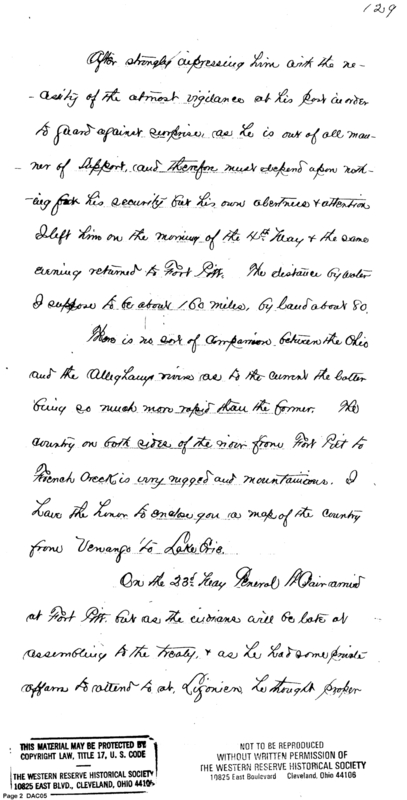 129
After strongly impressing him with the ne-
-cessity of the utmost vigilance at his post in order
to guard against surprise, as he is out of all man-
-ner of support, and therefore must depend upon noth-
-ing for his security but his own alertness & attention
I left him on the morning of the 4th May & the same
evening returned to Fort Pitt. The distance by water
I suppose to be about 160 miles, by land about 80.
There is no sort of comparison between the Ohio
and the Alleghany rivers as to the current the latter
being so much more rapid than the former. The
country on both sides of the river from Fort Pitt to
French Creek is very rugged and mountainous. I
have the honor to enclose you a map of the country
from Venango to Lake Erie.
On the 23d May General St Clair arrived
at Fort Pitt. but as the indians will be late at
assembling to the treaty, & as he had some private
affairs to attend to at, Ligonier he thought proper
THIS MATERIAL MAY BE PROTECTED BY
COPYRIGHT LAW, TITLE 17, U. S. CODE
THE WESTERN RESERVE HISTORICAL SOCIETY
10825 EAST BLVD., CLEVELAND, OHIO 44106
NOT TO BE REPRODUCED
WITHOUT WRITTEN PERMISSION OF
THE WESTERN RESERVE HISTORICAL SOCIETY
10825 East Boulevard Cleveland, Ohio 44106
Page 2 DAC05